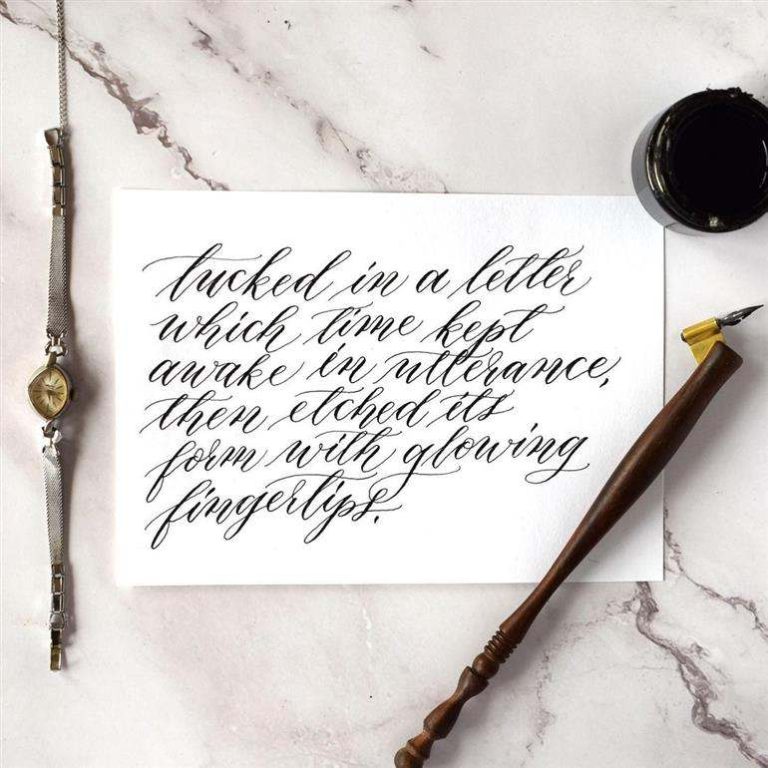 tucked in a letter
which time kept
awake in utterance,
then etched its
form with glowing
fingertips.